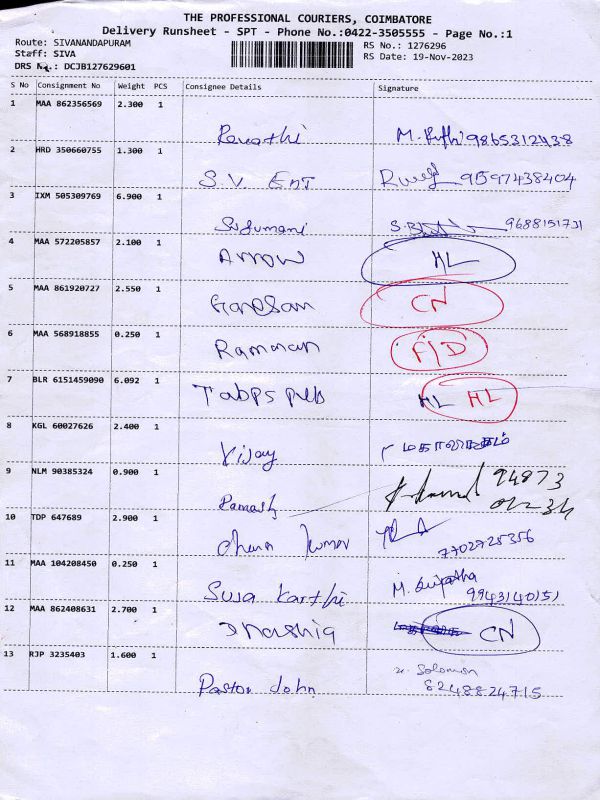 THE PROFESSIONAL COURIERS, COIMBATORE
Delivery Runsheet - SPT - Phone No.:0422-3505555 - Page No.:1
Route: SIVANANDAPURAM
RS No.: 1276296
Staff: SIVA
RS Date: 19-Nov-2023
DRS No.: DCJB127629601
S No Consignment No Weight PCS Consignee Details Signature
1 MAA 862356569 2.300 1
Revathi 9865312438
2 HRD 350660755 1.300 1
S.V. Ent 9597438404
3 IXM 505309769 6.900 1
9688151731
4 MAA 572205857 2.100 1
Arrow HL
5 MAA 861920727 2.550 1
Ganesan CN
6 MAA 568918855 0.250 1
Raman F/D
7 BLR 6151459090 6.092 1
HL HL
8 KGL 60027626 2.400 1
Vijay
9 NLM 90385324 0.900 1
Ramesh 94873
10 TDP 647689 2.900 1
Kumar 7702725356
11 MAA 104208450 0.250 1
Suja Karthi M. 9943140151
12 MAA 862408631 2.700 1
CN
13 RJP 3235403 1.600 1
Pastor John Solomon
8248824715